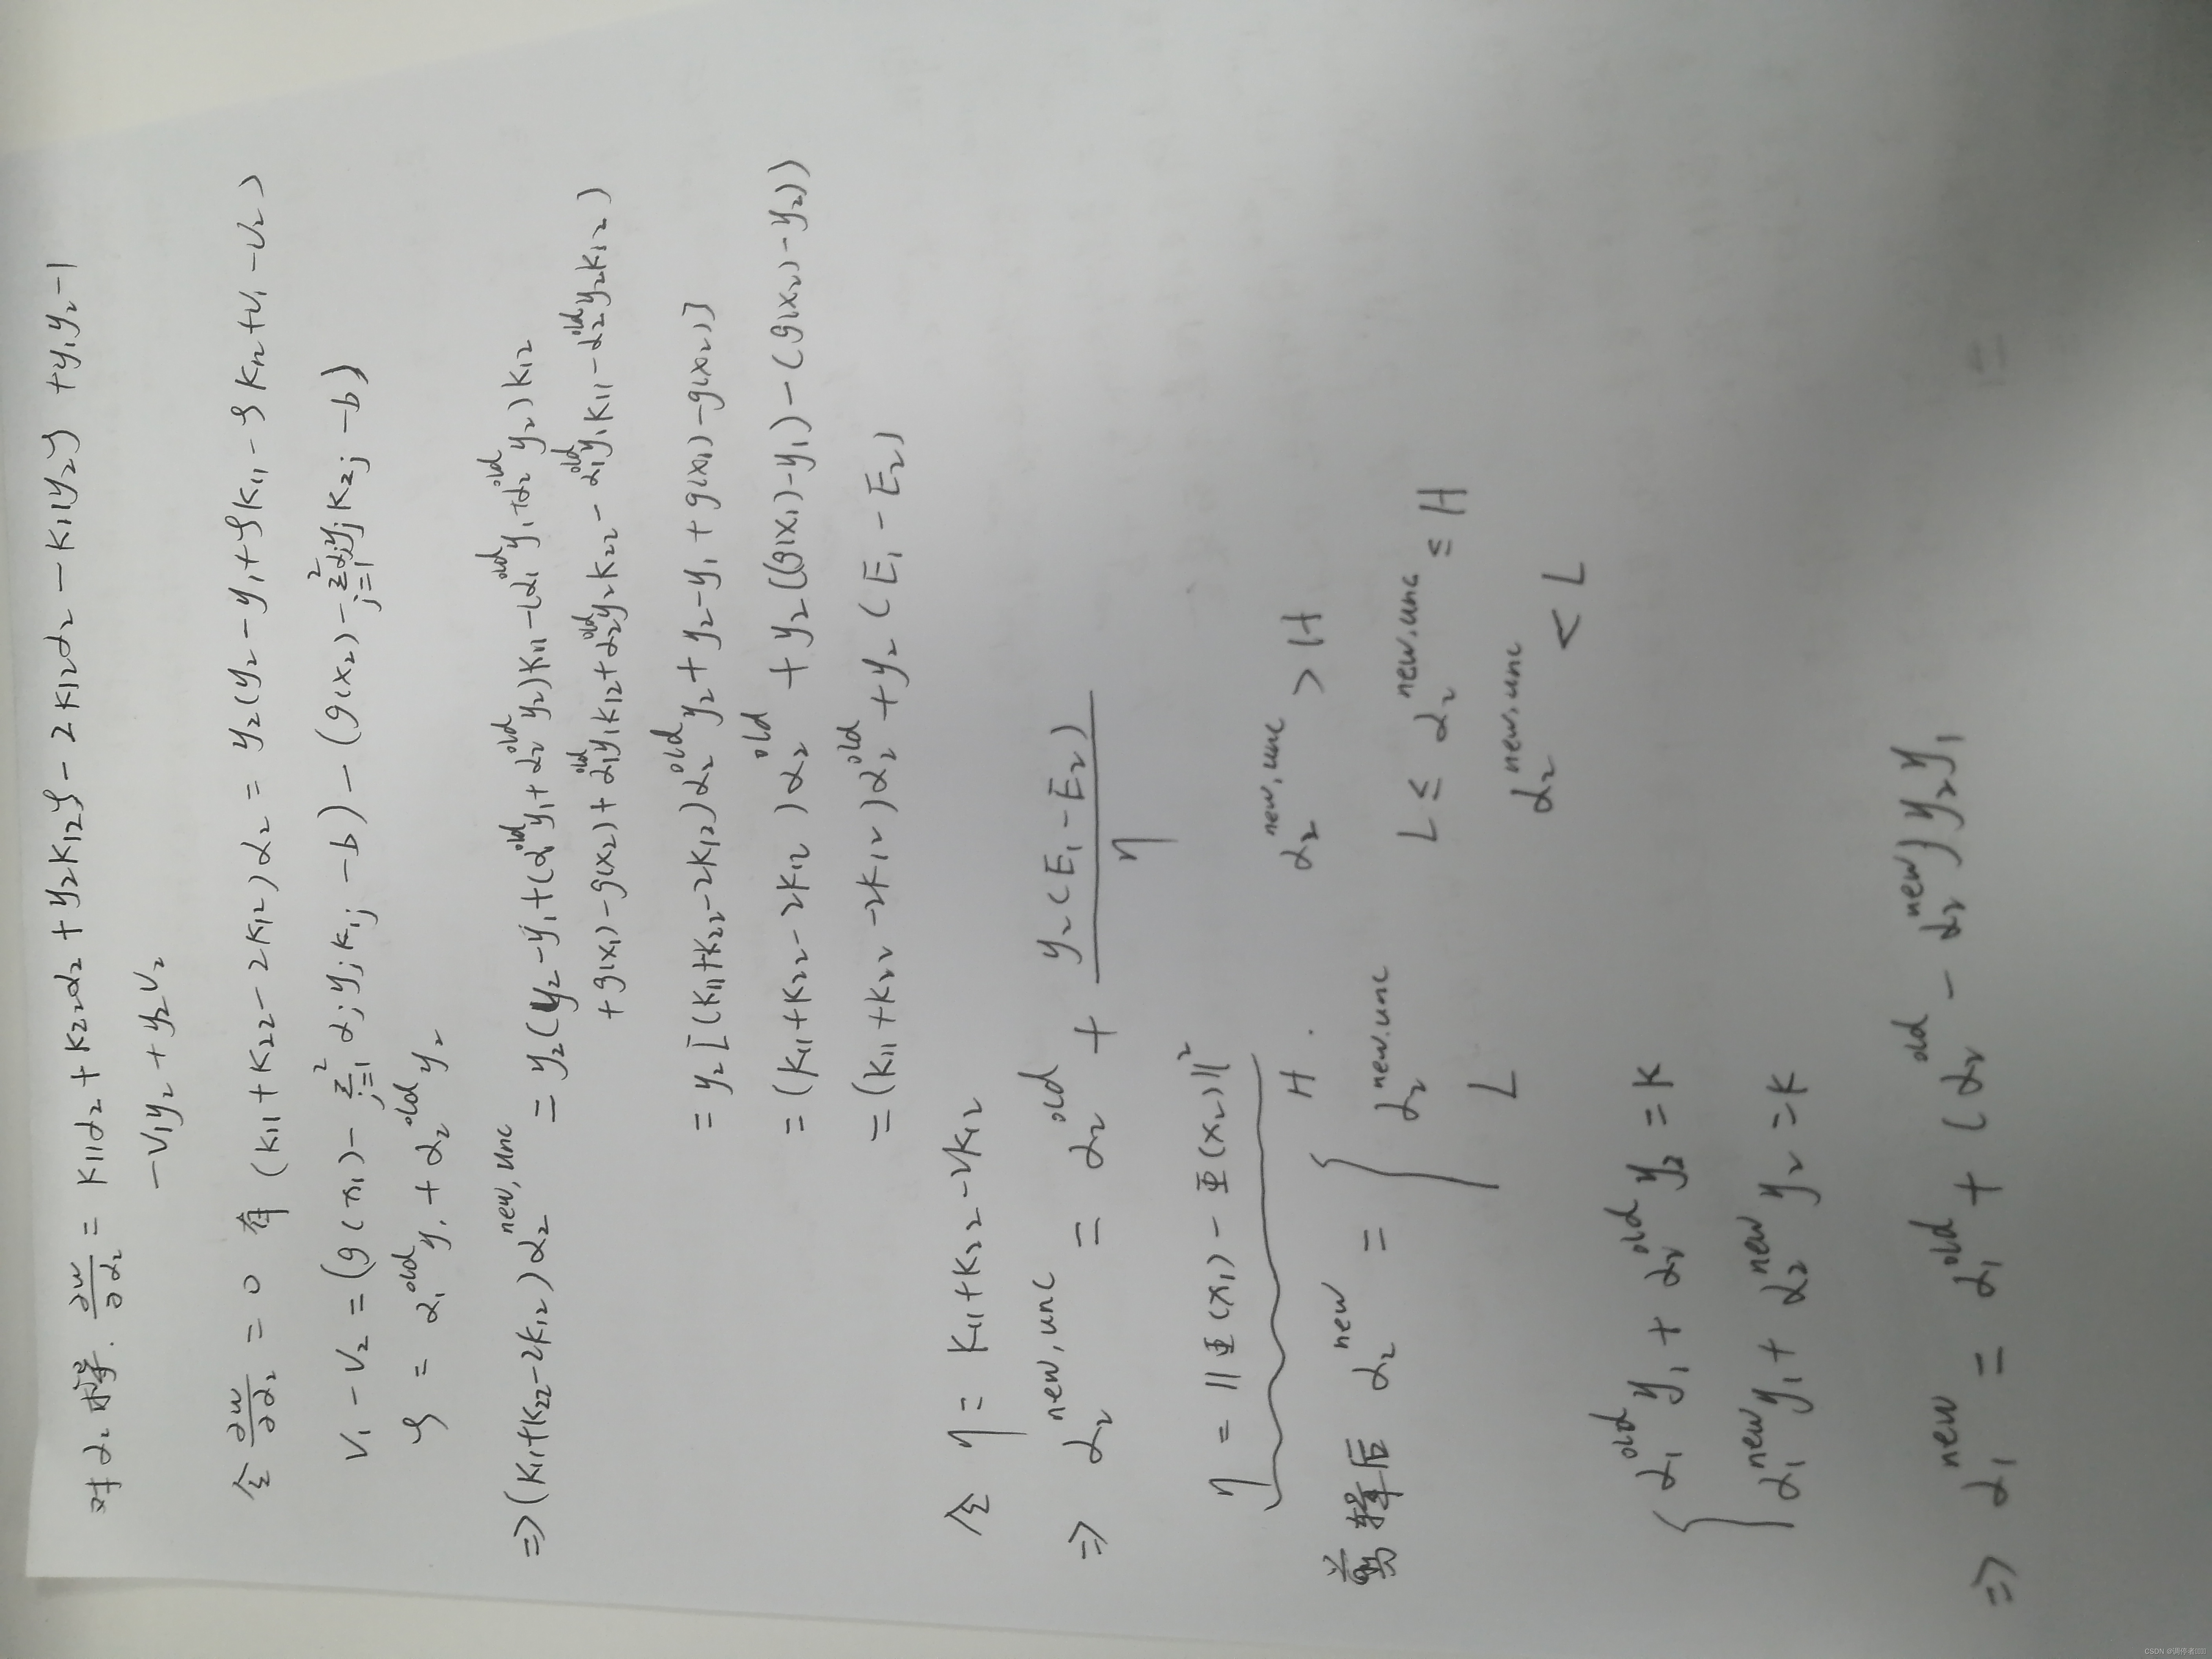 对α₂求导. ∂w/∂α₂ = K₁₁α₂ + K₂₂α₂ + y₂K₁₂ζ - 2K₁₂α₂ - K₁₁y₂ζ + y₁y₂ - 1
- V₁y₂ + y₂V₂
令 ∂w/∂α₂ = 0 有 (K₁₁ + K₂₂ - 2K₁₂)α₂ = y₂(y₂ - y₁ + ζK₁₁ - ζK₁₂ + V₁ - V₂)
V₁ - V₂ = (g(x₁) - Σ_{j=1}^{2} α_j y_j K₁j - b) - (g(x₂) - Σ_{j=1}^{2} α_j y_j K₂j - b)
ζ = α₁^{old} y₁ + α₂^{old} y₂
⇒ (K₁₁+K₂₂-2K₁₂)α₂^{new,unc}
= y₂(y₂ - y₁ + (α₁^{old}y₁ + α₂^{old}y₂)K₁₁ - (α₁^{old}y₁ + α₂^{old}y₂)K₁₂
+ g(x₁) - g(x₂) + α₁^{old}y₁K₁₂ + α₂^{old}y₂K₂₂ - α₁^{old}y₁K₁₁ - α₂^{old}y₂K₁₂)
= y₂[(K₁₁+K₂₂-2K₁₂)α₂^{old}y₂ + y₂ - y₁ + g(x₁) - g(x₂)]
= (K₁₁+K₂₂-2K₁₂)α₂^{old} + y₂((g(x₁)-y₁) - (g(x₂)-y₂))
= (K₁₁+K₂₂-2K₁₂)α₂^{old} + y₂(E₁ - E₂)
令 η = K₁₁+K₂₂-2K₁₂
⇒ α₂^{new,unc} = α₂^{old} + y₂(E₁-E₂)/η
η = ||Φ(x₁) - Φ(x₂)||²
H. α₂^{new,unc} > H
剪辑后 α₂^{new} = { α₂^{new,unc} L ≤ α₂^{new,unc} ≤ H
L α₂^{new,unc} < L
{ α₁^{old}y₁ + α₂^{old}y₂ = K
α₁^{new}y₁ + α₂^{new}y₂ = K
⇒ α₁^{new} = α₁^{old} + (α₂^{old} - α₂^{new})y₂y₁